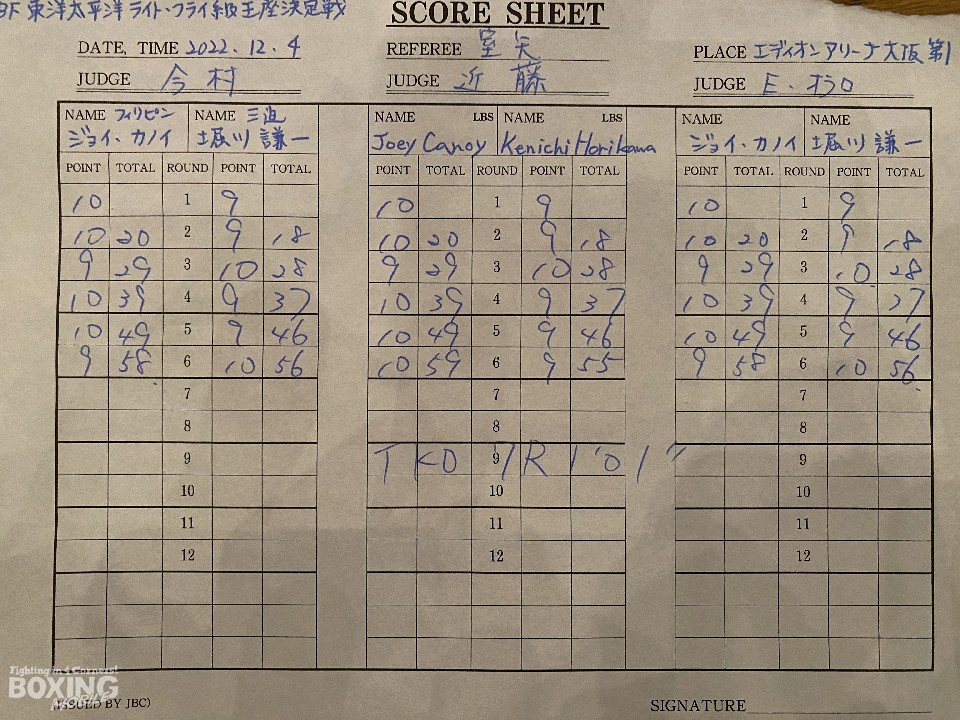 東洋太平洋ライト・フライ級王座決定戦
SCORE SHEET
DATE, TIME 2022.12.4 REFEREE 室矢 PLACE エディオンアリーナ大阪第1
JUDGE 今村 JUDGE 近藤 JUDGE E.オラロ
NAME フィリピン NAME 三迫 NAME LBS NAME LBS NAME NAME
ジョイ・カノイ 堀川謙一 Joey Canoy Kenichi Horikawa ジョイ・カノイ 堀川謙一
POINT TOTAL ROUND POINT TOTAL POINT TOTAL ROUND POINT TOTAL POINT TOTAL ROUND POINT TOTAL
10 1 9 10 1 9 10 1 9
10 20 2 9 18 10 20 2 9 18 10 20 2 9 18
9 29 3 10 28 9 29 3 10 28 9 29 3 10 28
10 39 4 9 37 10 39 4 9 37 10 39 4 9 37
10 49 5 9 46 10 49 5 9 46 10 49 5 9 46
9 58 6 10 56 10 59 6 9 55 9 58 6 10 56
7 7 7
8 8 8
9 TKO 9 7R 1'01" 9
10 10 10
11 11 11
12 12 12
Fighting in 4 Corners!
BOXING
MOBILE
(ISSUED BY JBC) SIGNATURE